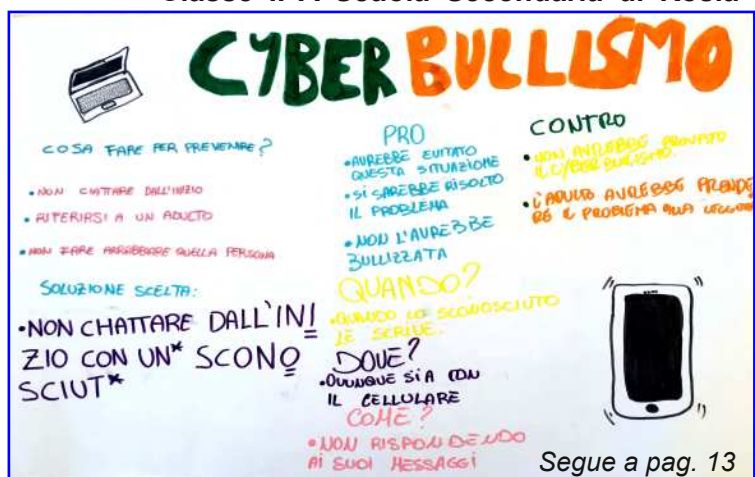 CYBER BULLISMO
COSA FARE PER PREVENIRE?
• NON CHATTARE DALL'INIZIO
• RIFERIRSI A UN ADULTO
• NON FARE ARRABBIARE QUELLA PERSONA
SOLUZIONE SCELTA:
• NON CHATTARE DALL'INI
ZIO CON UN* SCONO
SCIUT*
PRO
• AVREBBE EVITATO
QUESTA SITUAZIONE
• SI SAREBBE RISOLTO
IL PROBLEMA
• NON L'AVREBBE
BULLIZZATA
QUANDO?
• QUANDO LO SCONOSCIUTO
LE SCRIVE.
DOVE?
• OVUNQUE SIA CON
IL CELLULARE
COME?
• NON RISPONDENDO
AI SUOI MESSAGGI
CONTRO
• NON AVREBBE PROVATO
IL CYBERBULLISMO.
• L'ADULTO AVREBBE PRENDE
RE IL PROBLEMA ALLA LEGGERA
Segue a pag. 13